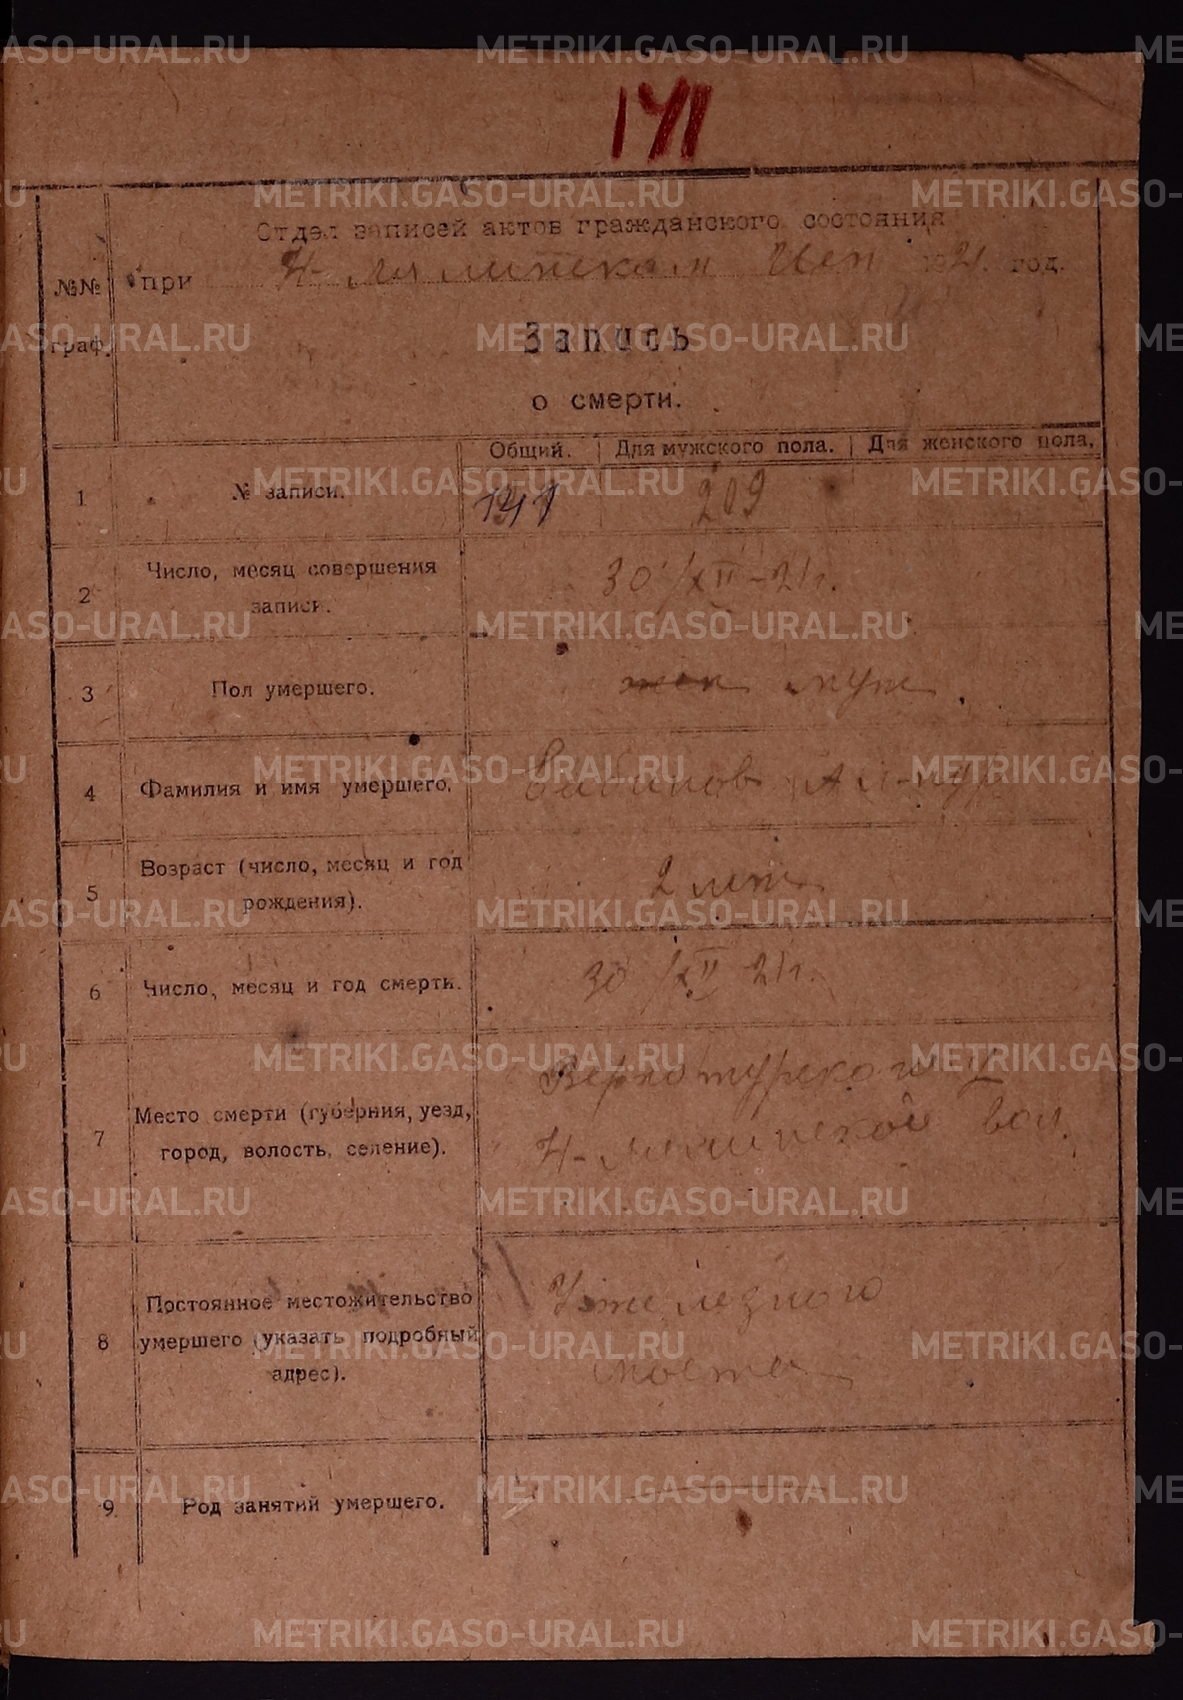 141
Отдел записей актов гражданского состояния
при Н-Лялинском 1921 год.
№№ граф.
Запись
о смерти.
Общий. Для мужского пола. Для женского пола.
1 № записи. 209
2 Число, месяц совершения записи. 30/XII-21г.
3 Пол умершего. жен муж.
4 Фамилия и имя умершего.
5 Возраст (число, месяц и год рождения). 2 лет
6 Число, месяц и год смерти. 30/XII 21г.
7 Место смерти (губерния, уезд, город, волость, селение). Верхотурского у
Н-Лялинской вол.
8 Постоянное местожительство умершего (указать подробный адрес). У железного
моста
9 Род занятий умершего. —
METRIKI.GASO-URAL.RU